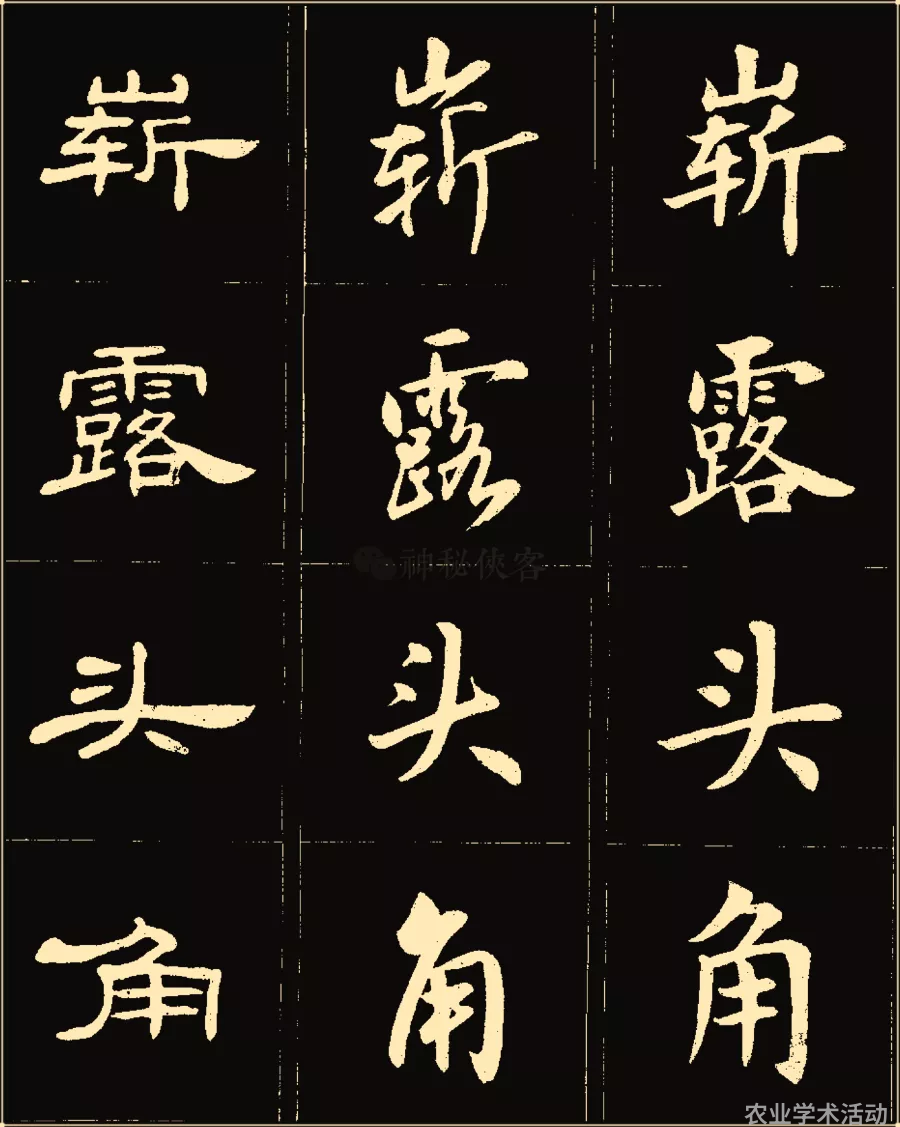 崭 崭 崭
露 露 露
头 头 头
角 角 角
神秘侠客
农业学术活动